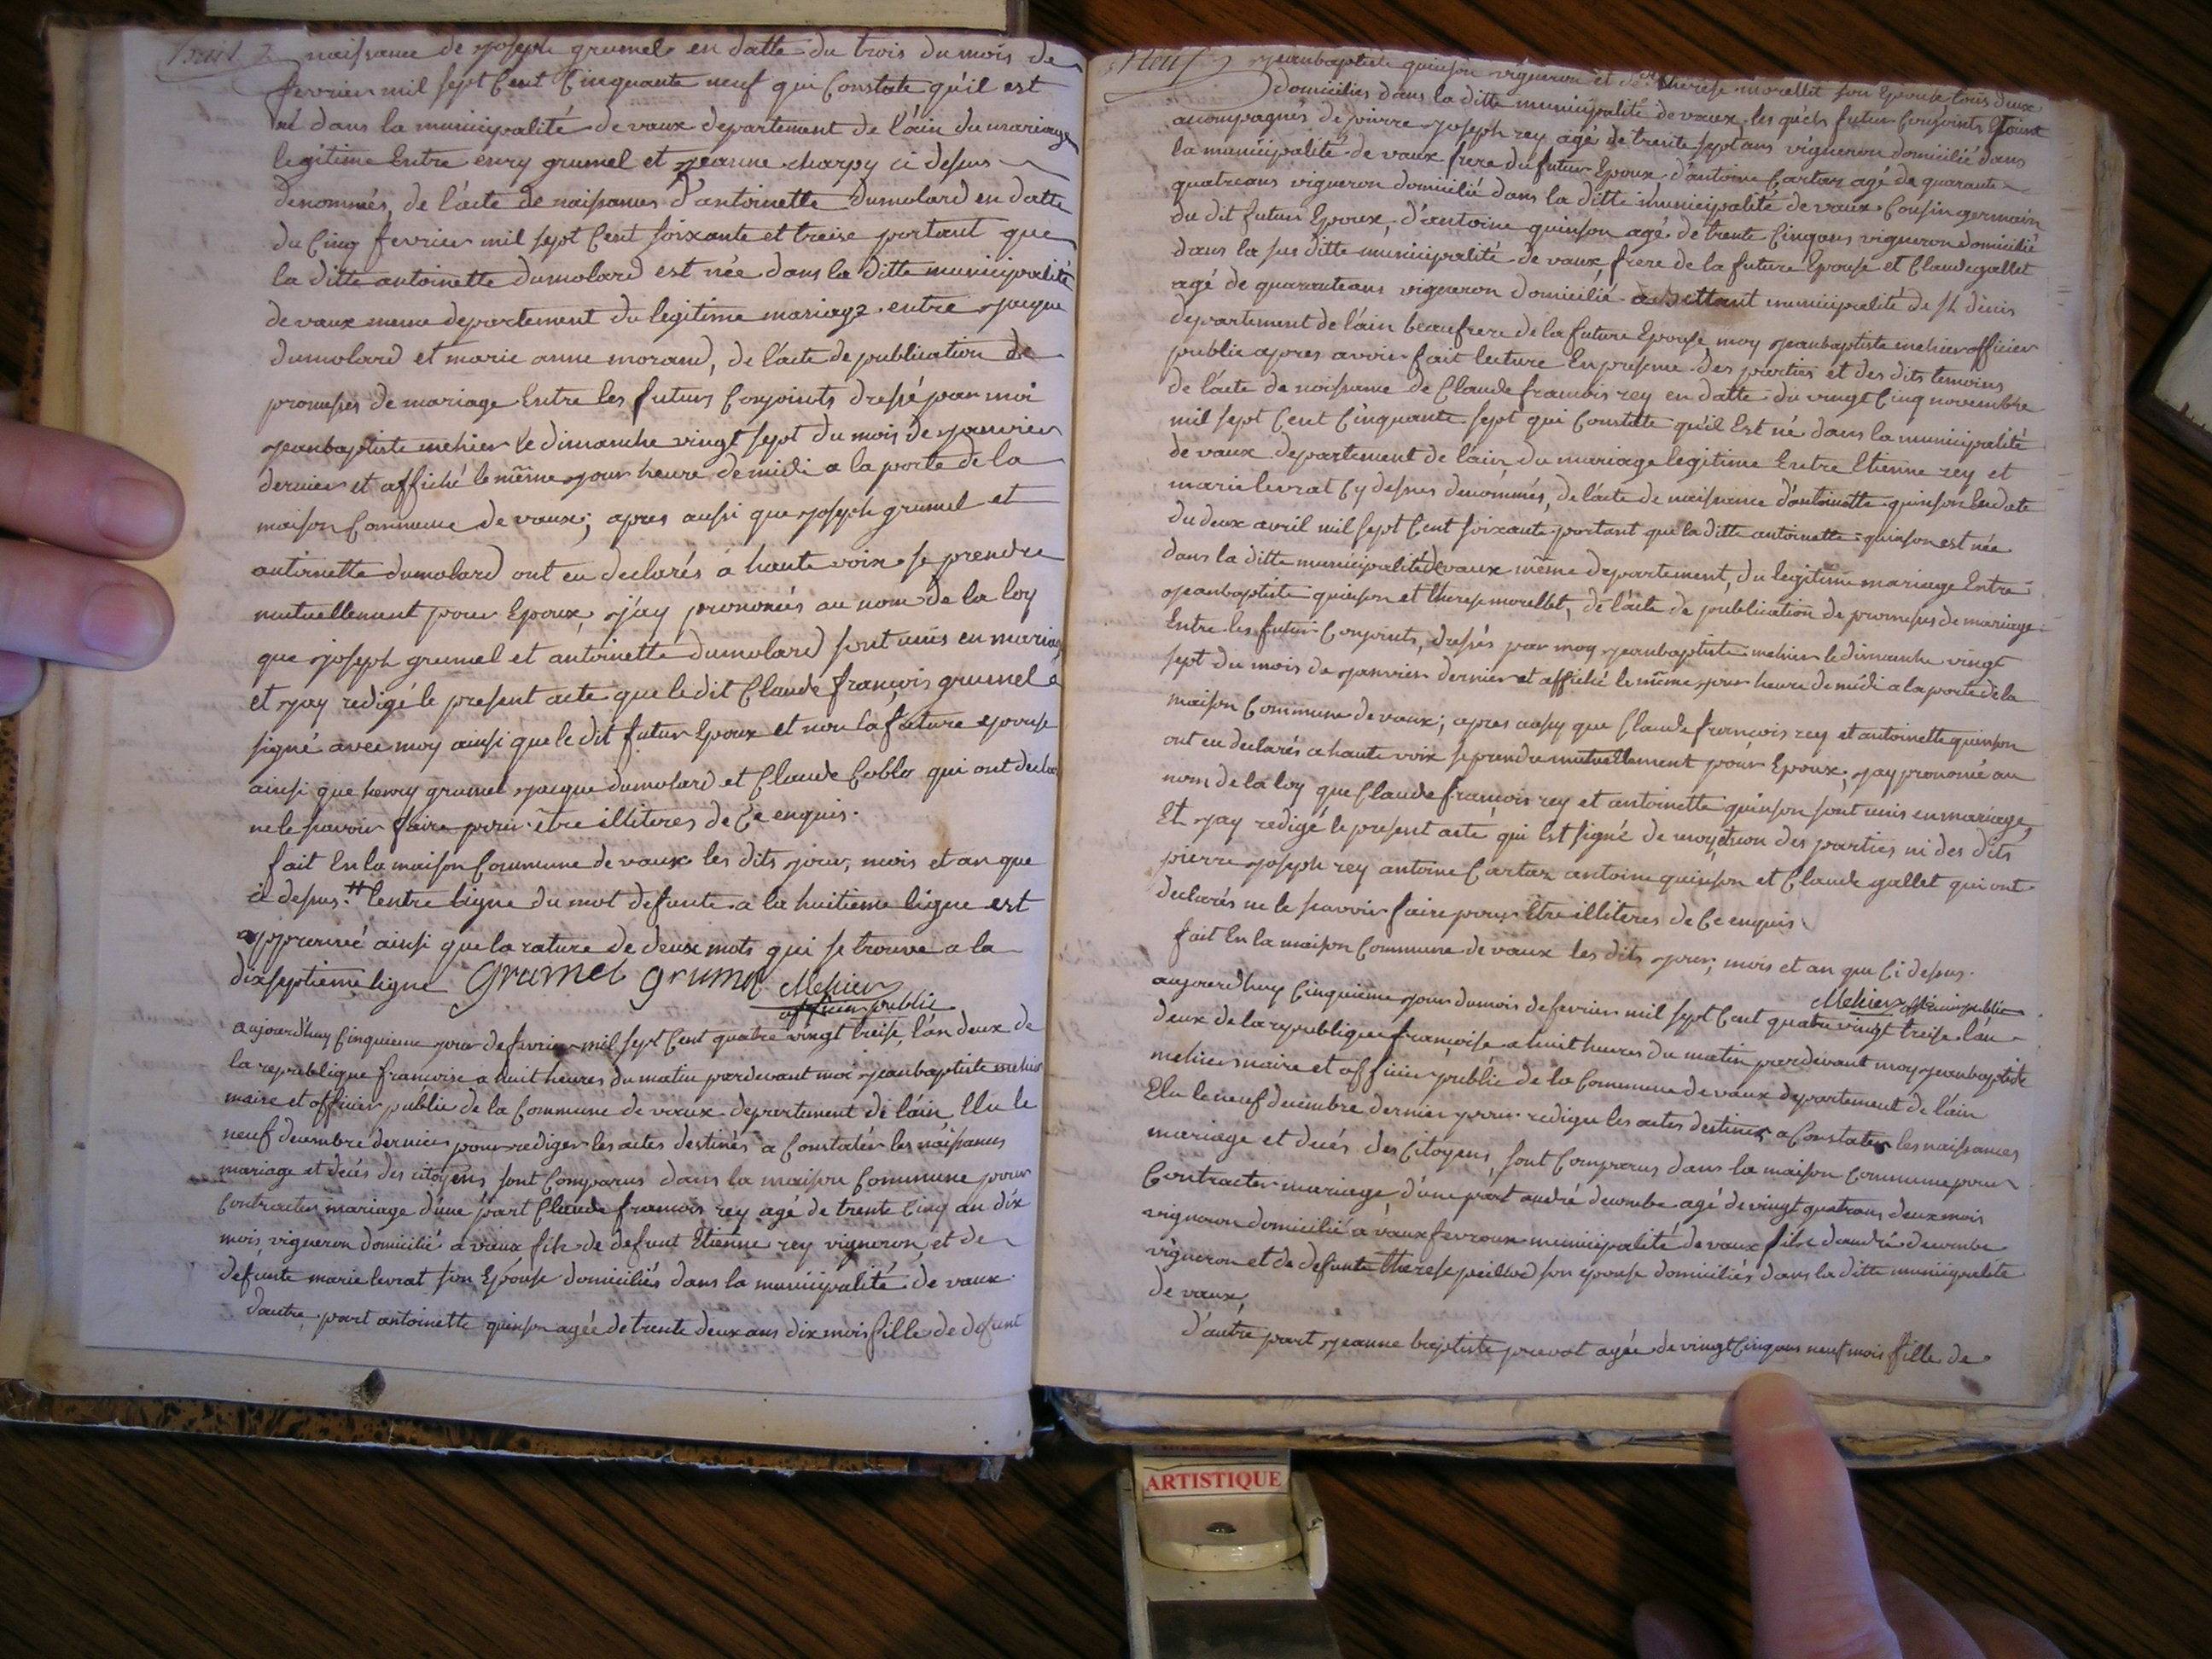 huit
naissance de joseph grumel en datte du trois du mois de
fevrier mil sept Cent Cinquante neuf qui Constate qu'il est
né dans la municipalité de vaux departement de l'ain du mariage
legitime Entre enry grumel et jeanne charpy ci dessus
denommés, de l'acte de naissances d'antoinette dumolard en datte
du Cinq fevrier mil sept Cent soixante et treise portant que
la ditte antoinette dumolard est née dans la ditte municipalité
de vaux meme departement du legitime mariage entre jaque
dumolard et marie anne morand, de l'acte de publication de
promesses de mariage Entre les futurs Conjoints dressé par moi
jeanbaptiste mehier le dimanche vingt sept du mois de janvier
dernier et affiché le même jour heure de midi a la porte de la
maison Commune de vaux; apres aussi que joseph grumel et
antoinette dumolard ont eu declarés à haute voix se prendre
mutuellement pour Epoux, j'ay prononcés au nom de la loy
que joseph grumel et antoinette dumolard sont unis en mariage
et j'ay redigé le present acte que le dit Claude françois grumel a
signé avec moy ainsi que le dit futur Epoux et non la future epouse
ainsi que henry grumel jaque dumolard et Claude Coblo qui ont declaré
ne le savoir faire pour être illiteres de Ce enquis.
fait En la maison Commune de vaux les dits jour, mois et an que
ci dessus. # l'entre ligne du mot defunte a la huitieme ligne est
approuvé ainsi que la rature de deux mots qui se trouve a la
dixseptieme ligne Grumel grumel Mehier
officier public
aujourd'huy Cinquieme jour de fevrier mil sept Cent quatre vingt treise, l'an deux de
la republique françoise a huit heures du matin pardevant moi jeanbaptiste mehier
maire et officier public de la Commune de vaux departement de l'ain Elu le
neuf decembre dernier pour rediger les actes destinés a Constater les naissances
mariage et decès des citoyens sont Comparus dans la maison Commune pour
Contracter mariage d'une part Claude francois rey agé de trente Cinq an dix
mois, vigneron domicilié a vaux fils de defunt Etienne rey vigneron, et de
defunte marie levrat son Epouse domiciliés dans la municipalité de vaux
dautre part antoinette quinson agée de trente deux ans dix mois fille de defunt
neuf
jeanbaptiste quinson vigneron et de therese morellet son Epouse tous deux
domiciliés dans la ditte municipalité de vaux les quels futur Conjoints Etoint
acompagnés de pierre joseph rey agé de trente sept ans vigneron domicilié dans
la municipalité de vaux frere du futur Epoux d'antoine Cartaz agé de quarante
quatre ans vigneron domicilié dans la ditte municipalité de vaux Cousin germain
du dit futur Epoux, d'antoine quinson agé de trente Cinq ans vigneron domicilié
dans la sus ditte municipalité de vaux, frere de la future Epouse et Claude gallet
agé de quarante ans vigneron domicilié a Bettant municipalité de st denis
departement de l'ain beaufrere de la future Epouse, moy jeanbaptiste mehier officier
public apres avoir fait lecture En presence des parties et des dits temoins
de l'acte de naissance de Claude francois rey en datte du vingt Cinq novembre
mil sept Cent Cinquante sept qui Constatte qu'il Est né dans la municipalité
de vaux departement de l'ain, du mariage legitime Entre Etienne rey et
marie levrat Cy dessus denommés, de l'acte de naissance d'antoinette quinson En date
du deux avril mil sept Cent soixante portant que la ditte antoinette quinson est née
dans la ditte municipalité de vaux même departement, du legitime mariage Entre
jeanbaptiste quinson et therese morellet, de l'acte de publication de promesses de mariage
Entre les futur Conjoints, dressés par moy jeanbaptiste mehier le dimanche vingt
sept du mois de janvier dernier et affiché le même jour heure de midi a la porte de la
maison Commune de vaux; apres aussy que Claude françois rey et antoinette quinson
ont eu declarés a haute voix se prendre mutuellement pour Epoux, j'ay prononcé au
nom de la loy que Claude françois rey et antoinette quinson sont unis en mariage,
Et j'ay redigé le present acte qui Est signé de moy et non des parties ni des dits
pierre joseph rey antoine Cartaz antoine quinson et Claude gallet qui ont
declarés ne le savoir faire pour Etre illiteres de Ce enquis
fait En la maison Commune de vaux les dits jour, mois et an que Ci dessus.
Mehier officier public
aujourd'huy Cinquieme jour du mois de fevrier mil sept Cent quatre vingt treise l'an
deux de la republique françoise a huit heures du matin pardevant moy jeanbaptiste
mehier maire et officier public de la Commune de vaux departement de l'ain
Elu le neuf decembre dernier pour rediger les actes destinés a Constater les naissances
mariage et decés des Citoyens, sont Comparus dans la maison Commune pour
Contracter mariage d'une part andré decombe agé de vingt quatre ans deux mois
vigneron domicilié a vaux fevroux municipalité de vaux fils d'andré decombe
vigneron et de defunte therese peillod son epouse domiciliés dans la ditte municipalité
de vaux,
d'autre part jeanne baptiste prevot agée de vingt Cinq ans neuf mois fille de
ARTISTIQUE